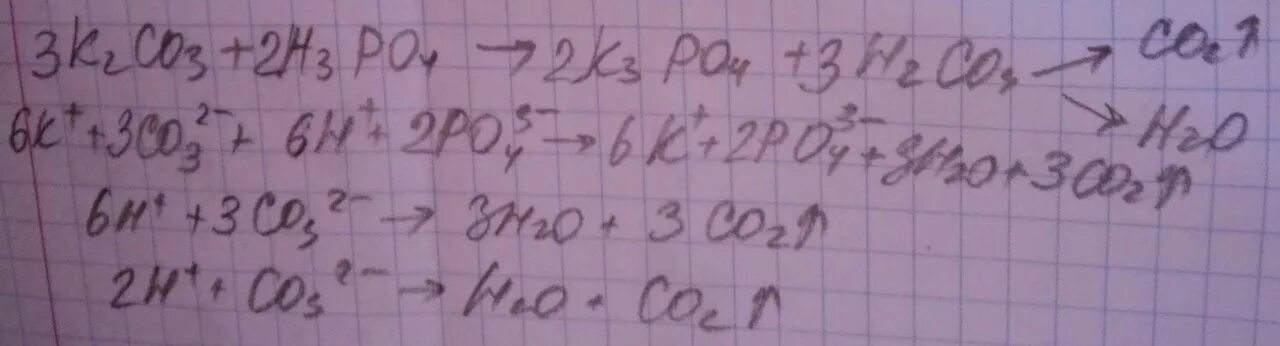 3K₂CO₃ + 2H₃PO₄ → 2K₃PO₄ + 3H₂CO₃ → CO₂↑
↘ H₂O
6K⁺ + 3CO₃²⁻ + 6H⁺ + 2PO₄³⁻ → 6K⁺ + 2PO₄³⁻ + 3H₂O + 3CO₂↑
6H⁺ + 3CO₃²⁻ → 3H₂O + 3CO₂↑
2H⁺ + CO₃²⁻ → H₂O + CO₂↑